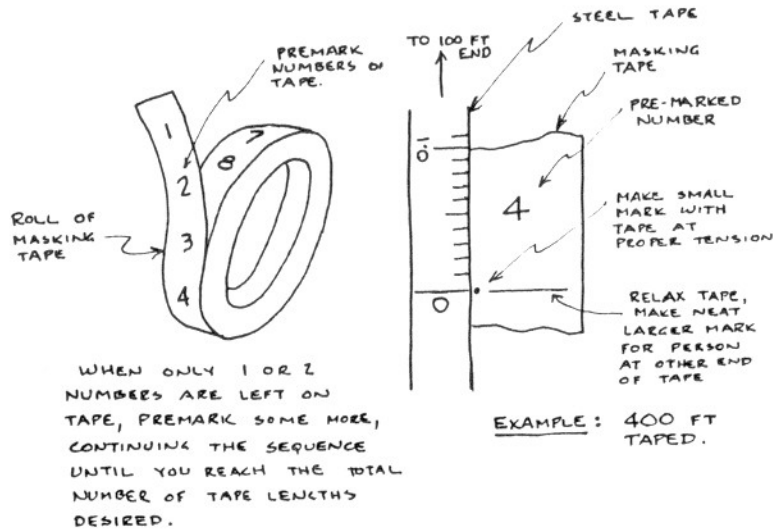 PREMARK
NUMBERS ON
TAPE.
1
2
3
4
7
8
ROLL OF
MASKING
TAPE
WHEN ONLY 1 OR 2
NUMBERS ARE LEFT ON
TAPE, PREMARK SOME MORE,
CONTINUING THE SEQUENCE
UNTIL YOU REACH THE TOTAL
NUMBER OF TAPE LENGTHS
DESIRED.
STEEL TAPE
TO 100 FT
END
MASKING
TAPE
PRE-MARKED
NUMBER
4
0
MAKE SMALL
MARK WITH
TAPE AT
PROPER TENSION
RELAX TAPE,
MAKE NEAT
LARGER MARK
FOR PERSON
AT OTHER END
OF TAPE
EXAMPLE: 400 FT
TAPED.